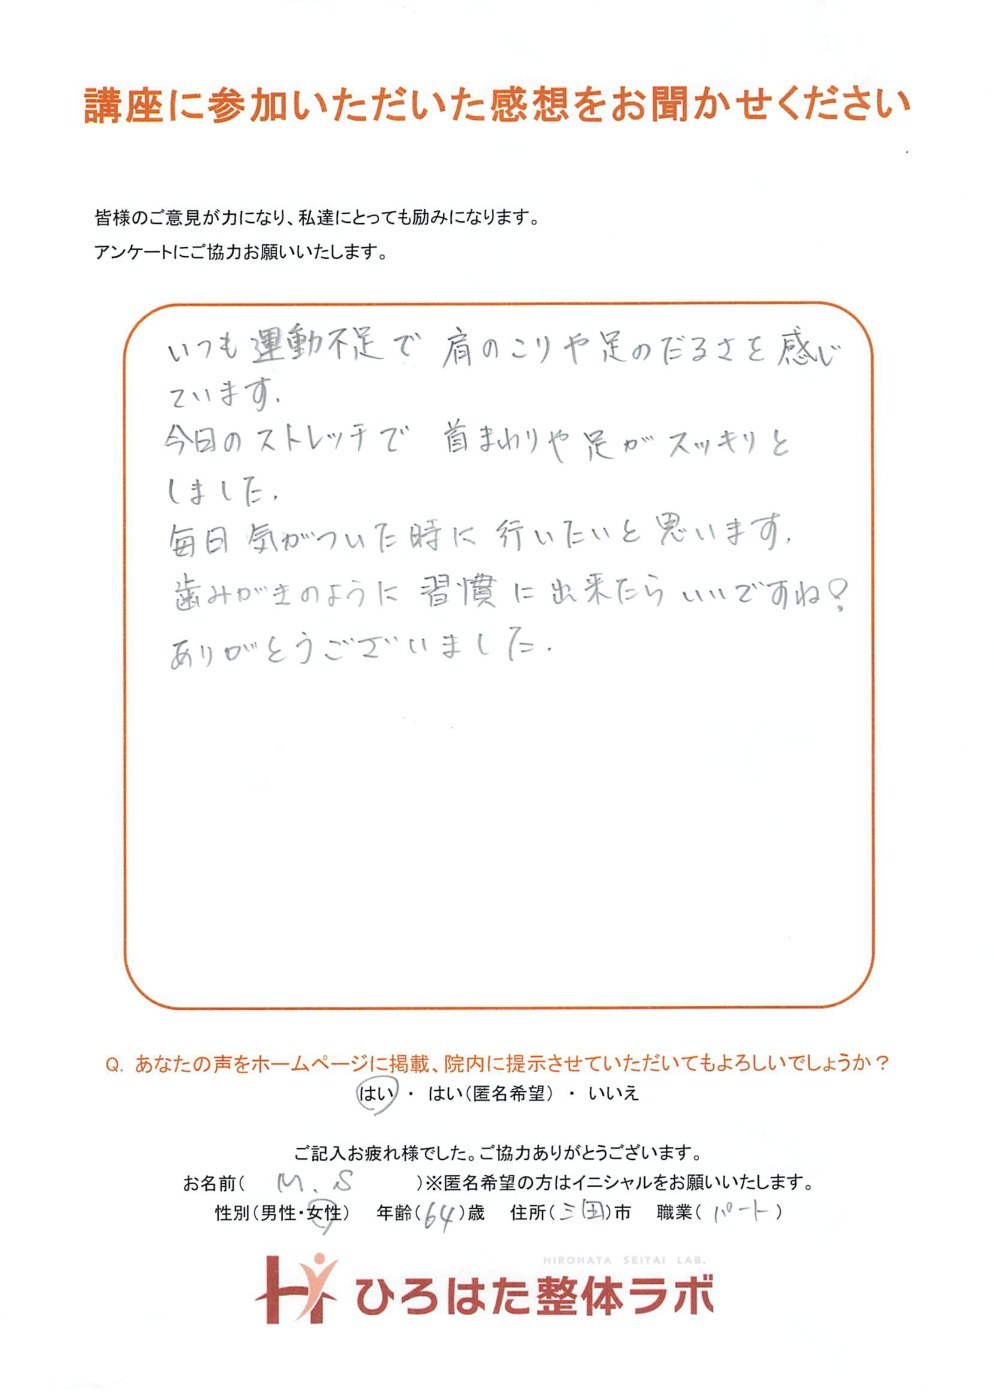 講座に参加いただいた感想をお聞かせください
皆様のご意見が力になり、私達にとっても励みになります。
アンケートにご協力お願いいたします。
いつも運動不足で 肩のこりや足のだるさを感じ
ています.
今日のストレッチで 首まわりや足がスッキリと
しました.
毎日 気がついた時に 行いたいと思います.
歯みがきのように 習慣に出来たらいいですね?
ありがとうございました.
Q. あなたの声をホームページに掲載、院内に提示させていただいてもよろしいでしょうか?
はい ・ はい(匿名希望) ・ いいえ
ご記入お疲れ様でした。ご協力ありがとうございます。
お名前( M.S )※匿名希望の方はイニシャルをお願いいたします。
性別(男性・女性) 年齢(64)歳 住所(三田)市 職業(パート)
HIROHATA SEITAI LAB.
ひろはた整体ラボ